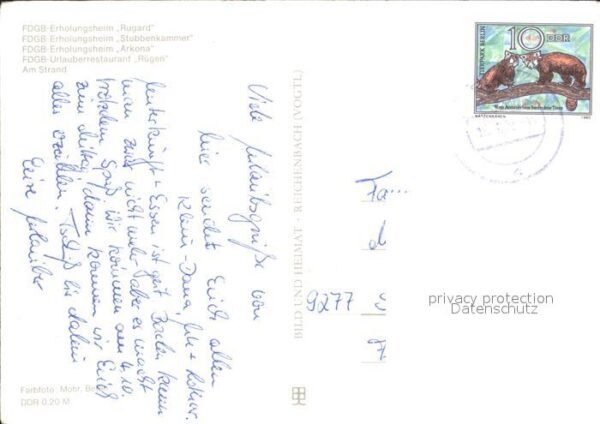 FDGB-Erholungsheim „Rugard"
FDGB-Erholungsheim „Stubbenkammer"
FDGB-Erholungsheim „Arkona"
FDGB-Urlauberrestaurant „Rügen"
Am Strand
TIERPARK BERLIN
10 DDR
Vom Aussterben bedrohte Tiere
KATZENBÄREN
Viele Urlaubsgrüße von
hier sendet Euch allen
Klein-Dana,
Unterkunft + Essen ist gut. Baden kann
man zwar nicht mehr, aber es macht
trotzdem Spaß. Wir kommen am 4.10.
zum dann können wir Euch
alles erzählen. Tschüß bis dahin
Eure Urlauber
BILD UND HEIMAT · REICHENBACH (VOGTL)
Fa...
9277
privacy protection
Datenschutz
Farbfoto: Mohr, Be
DDR 0,20 M